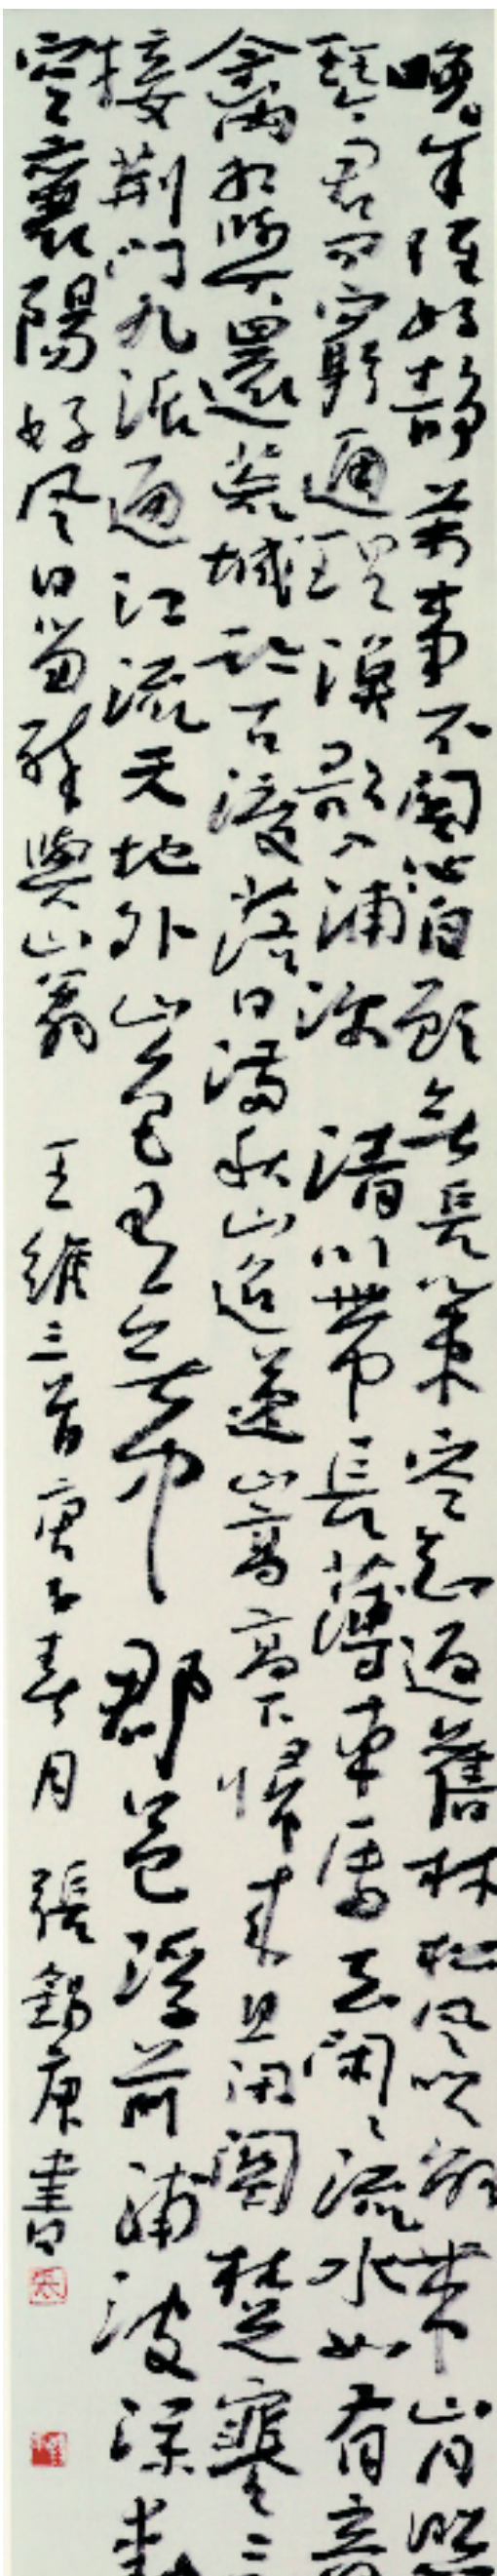 晚年唯好静萬事不關心自顧無長策空知返舊林松風吹解帶山月照
琴君問窮通理漁歌入浦深 清川帶長薄車馬去閑々流水如有意
禽相與還荒城臨古渡落日滿秋山迢遞嵩高下歸來且閉關楚塞三
接荆門九派通江流天地外山色有無中 郡邑浮前浦波動
空襄陽好风日留醉與山翁 王維三首庚子春月 張錫康書